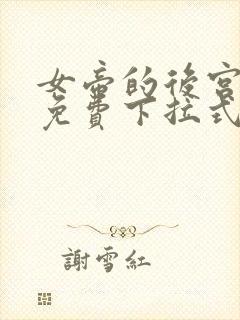 女帝的後宮
免費下拉式
謝雪紅